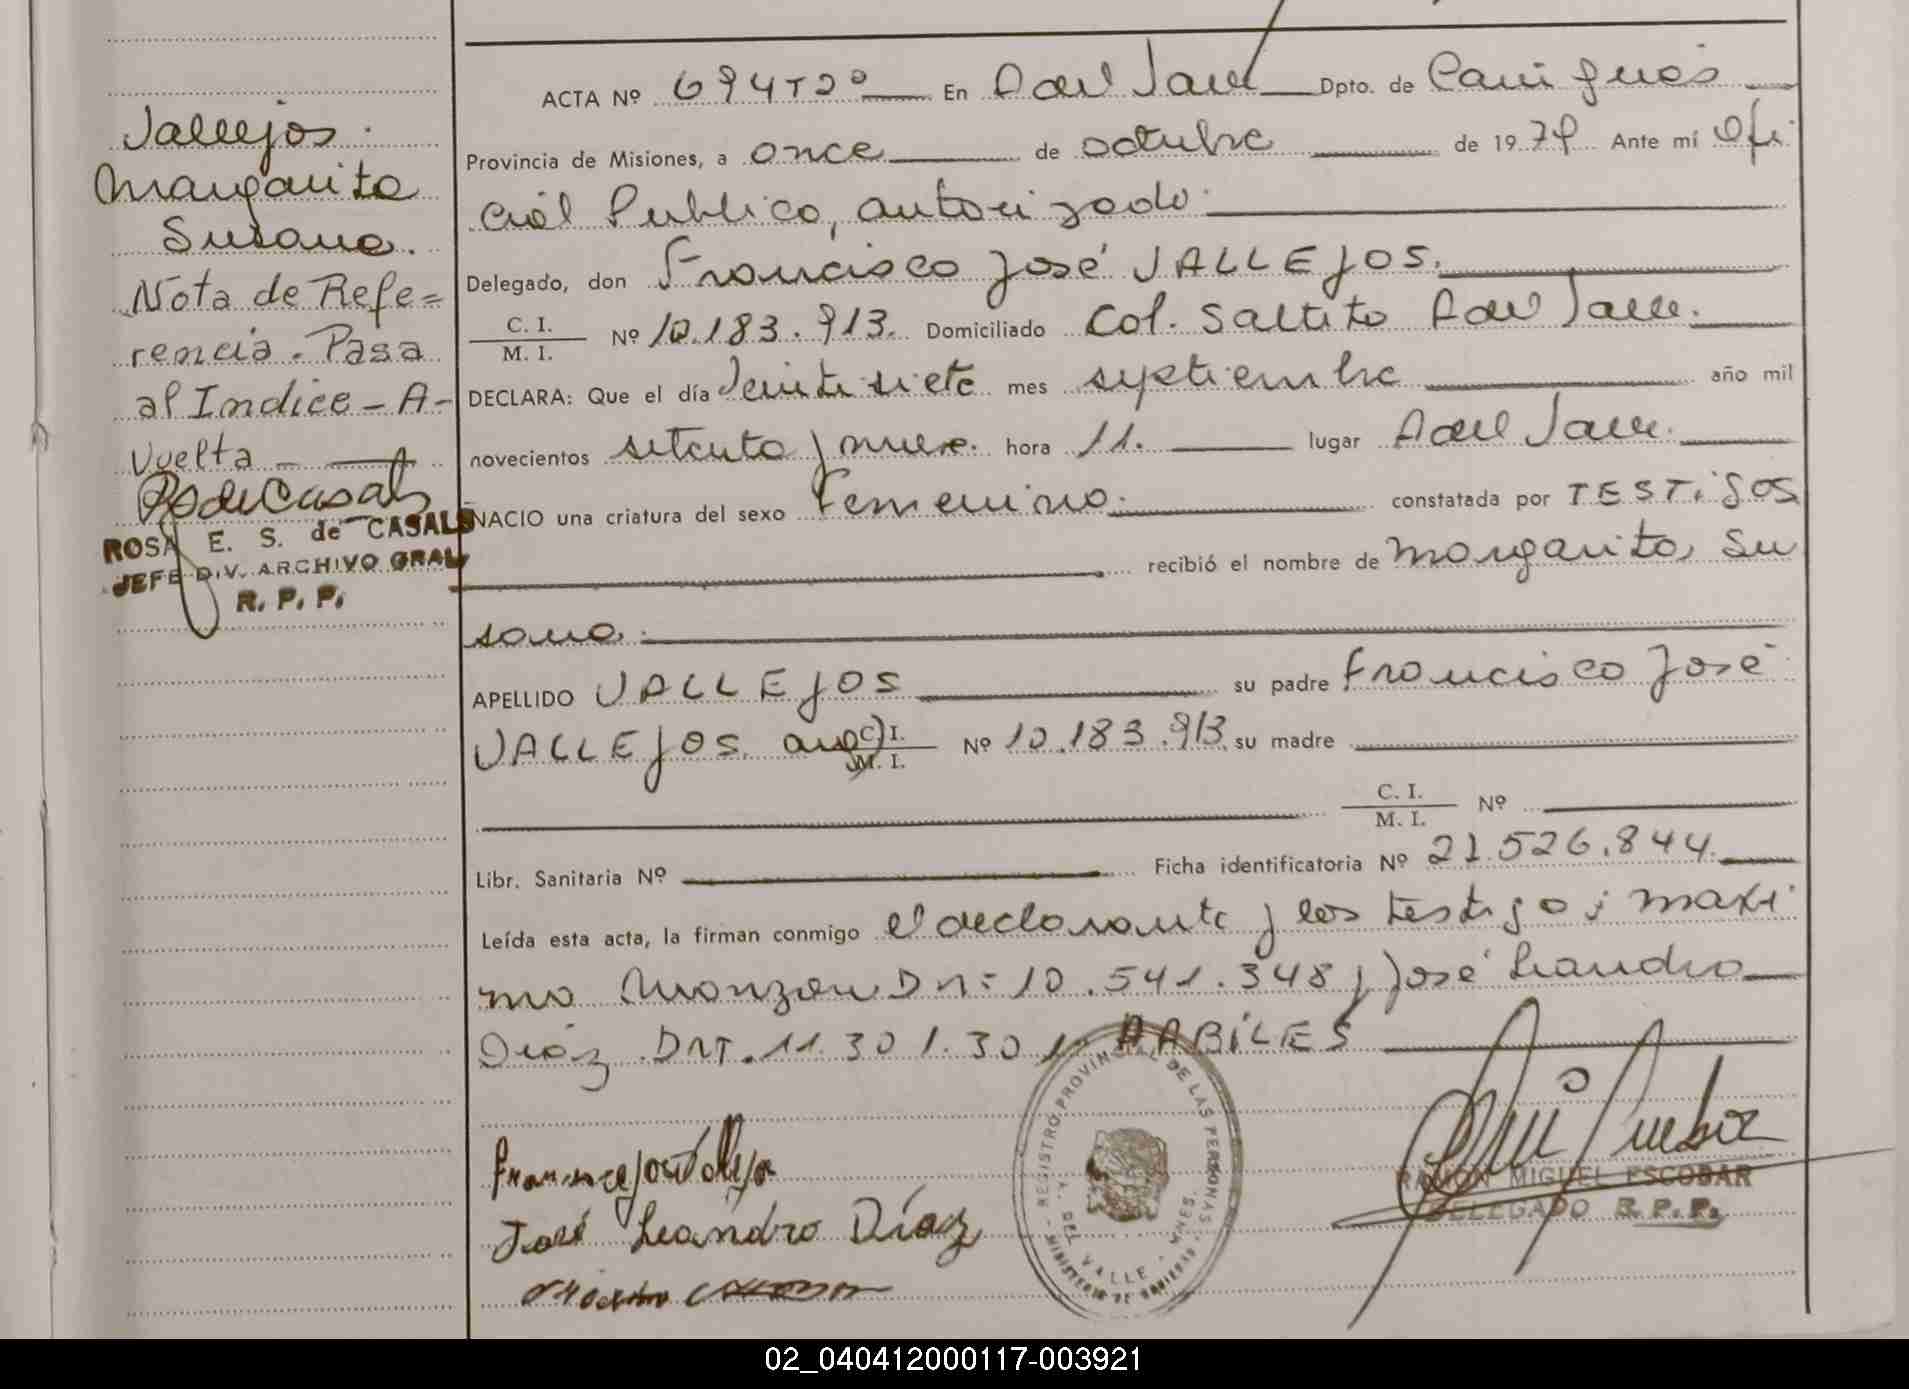 Vallejos
Margarita
Susana.
Nota de Refe=
rencia. Pasa
al Indice - A -
Vuelta -
ROSA E. S. de CASALS
JEFE DIV. ARCHIVO GRAL
R. P. P.
ACTA Nº 694 T 2º En Del Valle Dpto. de Cainguás
Provincia de Misiones, a once de octubre de 1979 Ante mí Ofi
cial Publico, autorizado
Delegado, don Francisco José VALLEJOS.
C. I.
M. I. Nº 10.183.913. Domiciliado Col. Saltito Del Valle.
DECLARA: Que el día Veintisiete mes septiembre año mil
novecientos setenta y nueve. hora 11. lugar Del Valle.
NACIO una criatura del sexo Femenino. constatada por TESTigos
recibió el nombre de Margarita, Su
sana.
APELLIDO VALLEJOS su padre Francisco José
VALLEJOS. arg. C. I.
M. I. Nº 10.183.913 su madre
C. I.
M. I. Nº
Libr. Sanitaria Nº Ficha identificatoria Nº 21.526.844.
Leída esta acta, la firman conmigo el declarante y los testigos; Maxi
mo Monzon DNI: 10.541.348 y José Leandro
Diáz DNI. 11.301.301 HABiLES
José Leandro Díaz
REGISTRO PROVINCIAL DE LAS PERSONAS
DEL VALLE - MNES.
MINISTERIO DE GOBIERNO
RAMON MIGUEL ESCOBAR
DELEGADO R. P. P.
02_040412000117-003921